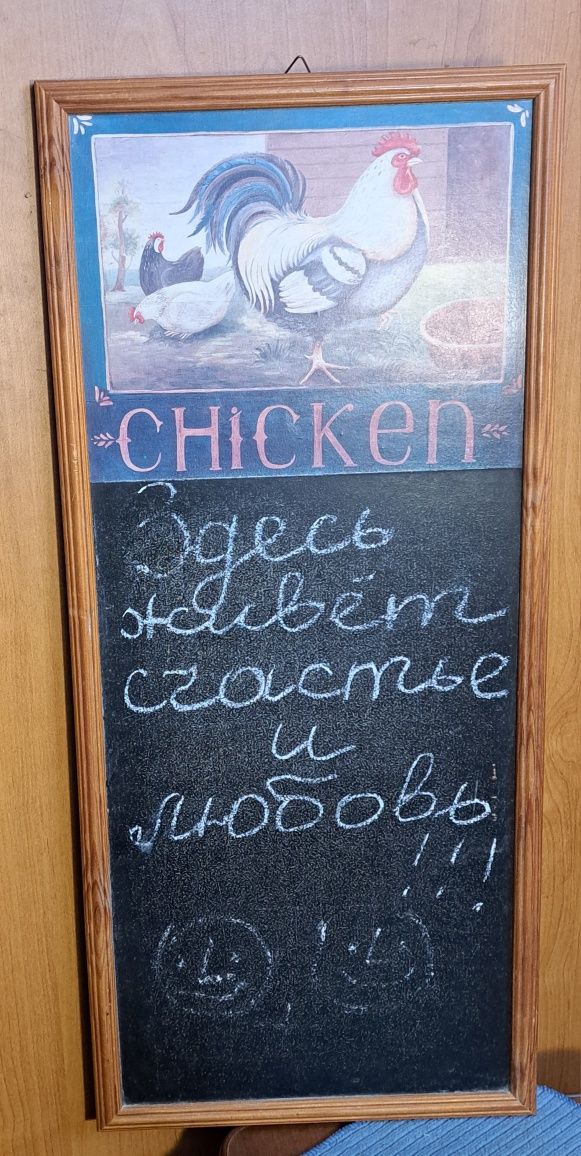 CHiCKen
Здесь
живёт
счастье
и
любовь
!!!